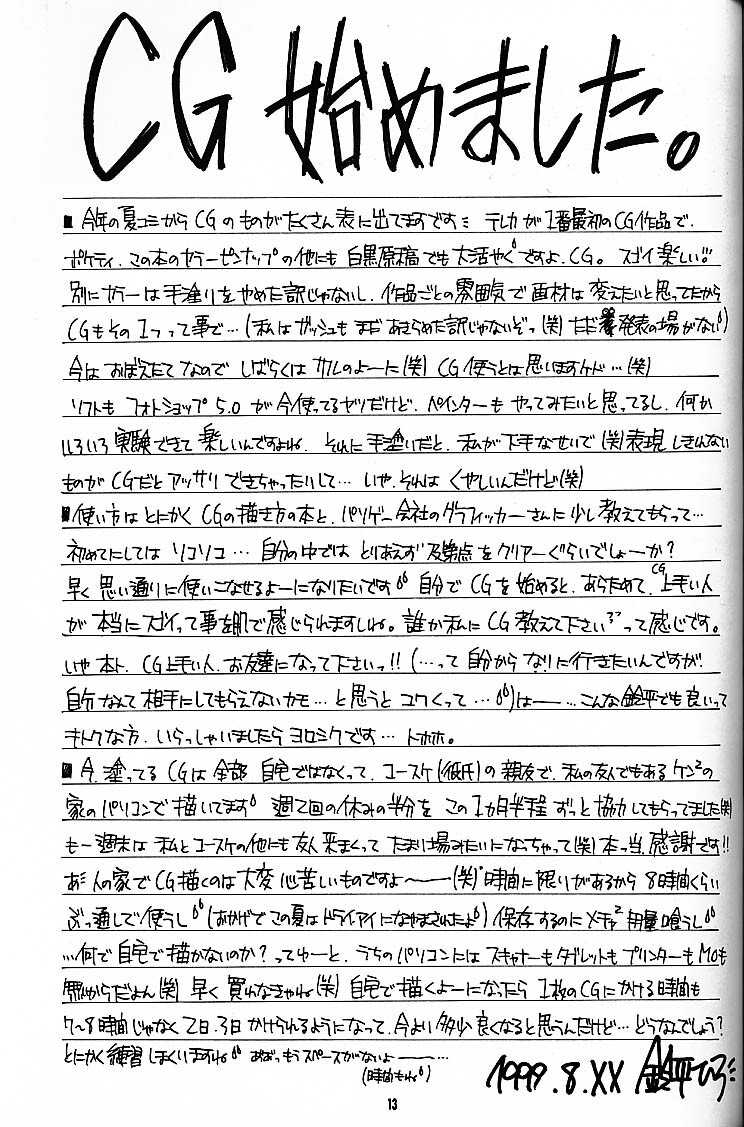 CG 始めました。
■ 今年の夏コミから CG のものがたくさん表に出てますですミ テレカが1番最初のCG作品で、
ポケティ、この本のカラーピンナップの他にも 白黒原稿でも大活やくですよ、CG。 スゴイ楽しい!!
別にカラーは手塗りをやめた訳じゃないし、作品ごとの雰囲気で画材は変えたいと思ってたから
CGもその1つって事で…(私はガッシュもまだあきらめた訳じゃないぞっ(笑) ただ発表の場がない)
今はおぼえたてなのでしばらくはサルのよーに(笑) CG使うとは思いますケド…(笑)
ソフトもフォトショップ5.0が今使ってるヤツだけど、ペインターもやってみたいと思ってるし、何か
いろいろ実験できて楽しいんですよね。それに手塗りだと、私が下手なせいで(笑)表現しきれない
ものがCGだとアッサリできちゃったりして… いや、それはくやしいんだけど(笑)
■使い方はとにかく CGの描き方の本と、パソゲー会社のグラフィッカーさんに少し教えてもらって…
初めてにしては ソコソコ… 自分の中では とりあえず及第点をクリアーぐらいでしょーか?
早く思い通りに使いこなせるよーになりたいです 自分でCGを始めると、あらためて、CG上手い人
が本当にスゴイって事を肌で感じられますしね。誰か私にCG教えて下さいって感じです。
いや本ト、CG上手い人、お友達になって下さいっ!!(…って自分からなりに行きたいんですが、
自分なんて相手にしてもらえないカモ…と思うとコワくって…)は――…こんな鈴平でも良いって
キトクな方、いらっしゃいましたらヨロシクです…トホホ。
■今、塗ってるCGは全部 自宅ではなくって、コースケ(彼氏)の親友で、私の友人でもあるケン²の
家のパソコンで描いてます 週2回の休みの半分を この1カ月半程ずっと協力してもらってました(笑)
も一週末は私とコースケの他にも友人来まくってたまり場みたいになっちゃって(笑)本っ当、感謝です!!
あ、人の家でCG描くのは大変心苦しいものですよ~――(笑)時間に限りがあるから8時間くらい
ぶっ通しで使うし(おかげでこの夏はドライアイになやまされたよ)保存するのにメチャ²用量喰うし
…何で自宅で描かないのか?ってゆーと、うちのパソコンにはスキャナーもタブレットもプリンターもMOも
無いからだよん(笑) 早く買わなきゃね(笑) 自宅で描くよーになったら1枚のCGにかける時間も
7~8時間じゃなく2日、3日かけられるようになって、今より多少良くなると思うんだけど…どうなんでしょう?
とにかく練習しまくりますね あおっもうスペースがないよ――…
(時間もね)
1999.8.XX 鈴平ひろミ
13